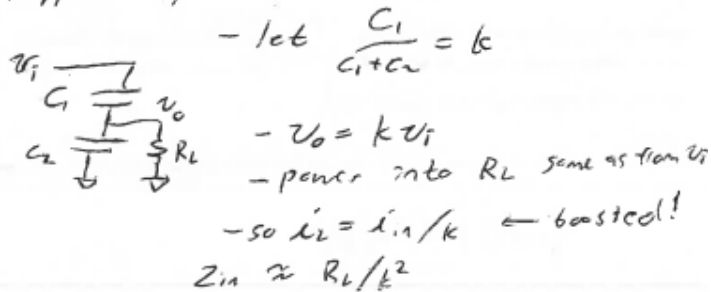 - let C₁/(C₁+C₂) = k
vᵢ
C₁
vₒ
C₂
R_L
- vₒ = k vᵢ
- power into R_L same as from vᵢ
- so i₂ = iᵢₙ/k ← boosted!
Zᵢₙ ≈ R_L/k²